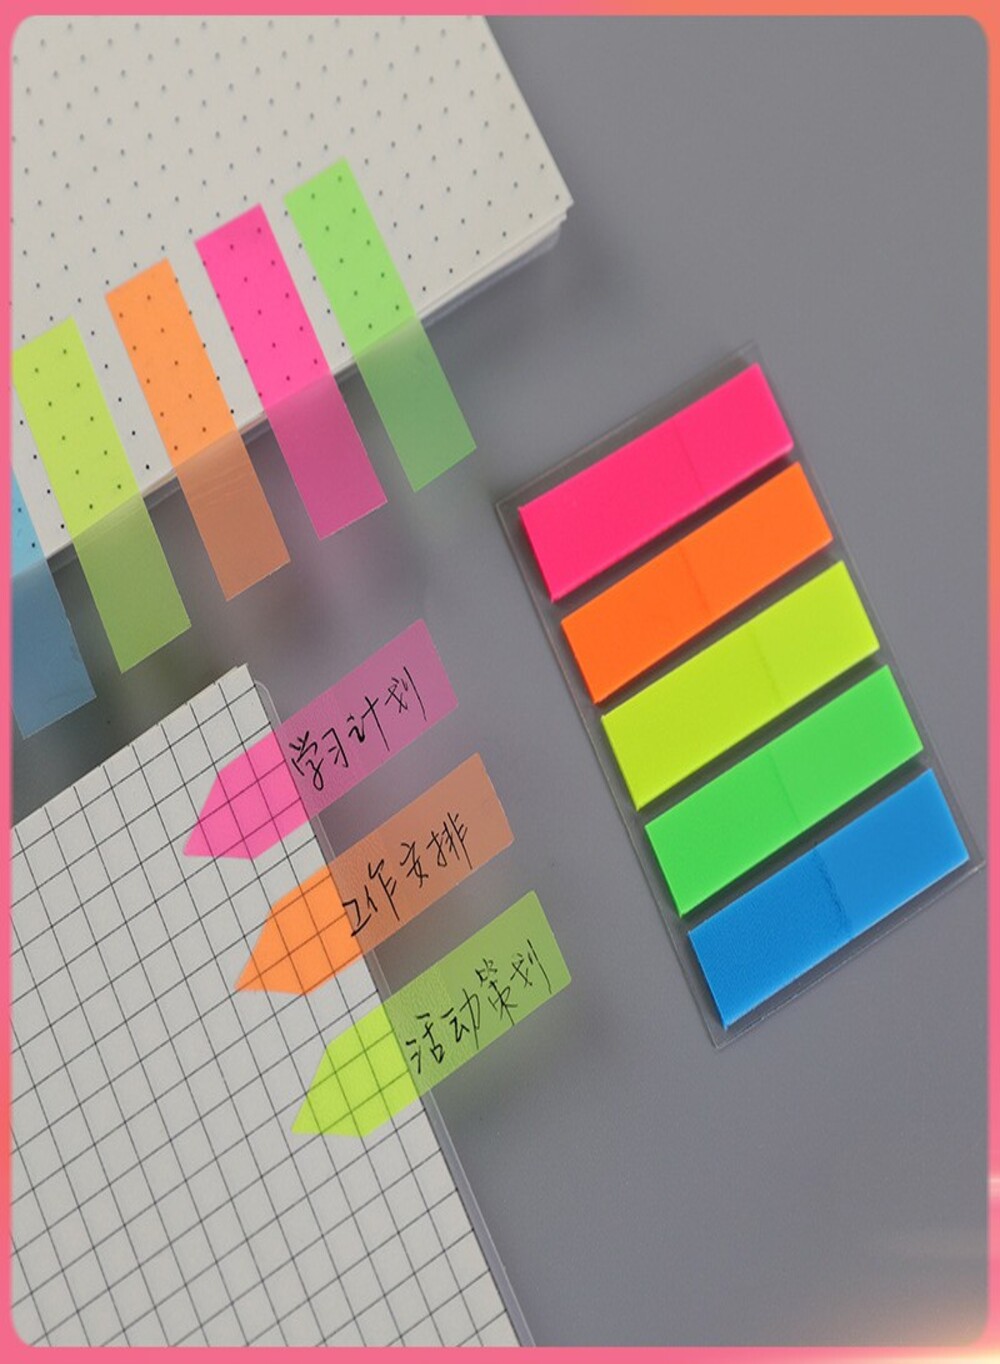 学习计划
工作安排
活动策划